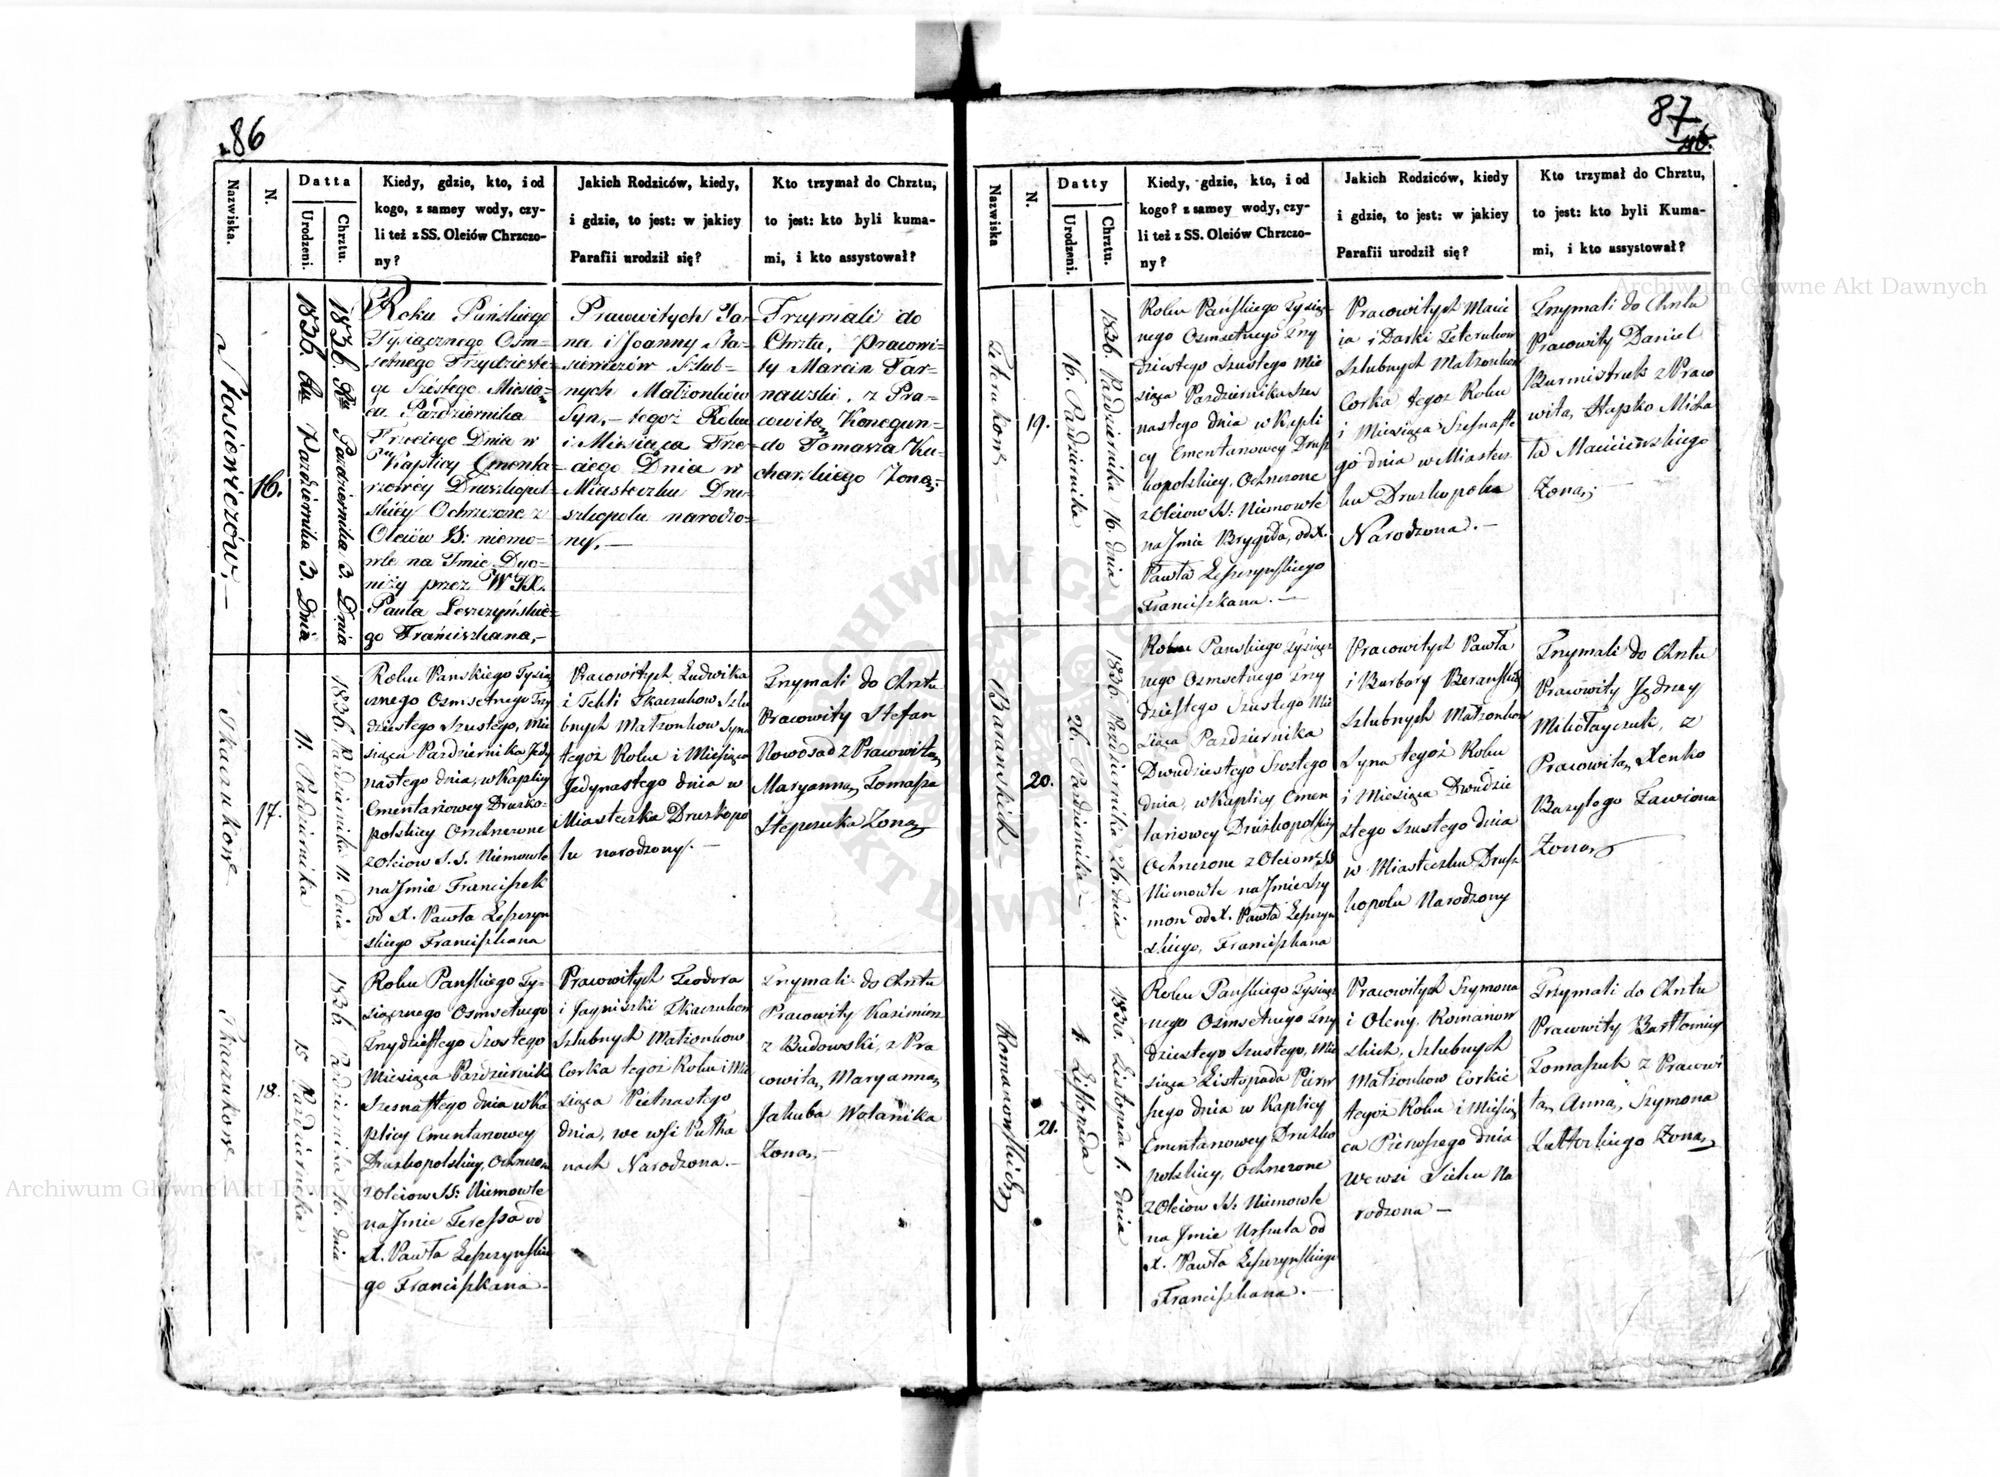 86
Nazwiska.
N.
Datta
Urodzeni.
Chrztu.
Kiedy, gdzie, kto, i od
kogo, z samey wody, czy-
li też z SS. Oleiów Chrzczo-
ny?
Jakich Rodziców, kiedy,
i gdzie, to jest: w jakiey
Parafii urodził się?
Kto trzymał do Chrztu,
to jest: kto byli kuma-
mi, i kto assystował?
Stasiewiczów,—
16.
1836. Ru Pazdziernika 3. Dnia
1836. Ru Pazdziernika 3. Dnia
Roku Pańskiego
Tysiącznego Ośm-
setnego Trzydzieste-
go Szóstego Miesią-
ca Października
Trzeciego Dnia w
Kaplicy Cmenta-
rzowéy Druszkopol-
skiéy Ochrzczone z
Oleiów SS: niemo-
wle na Imie Dyo-
nizy przez W JX.
Paula Leszczyńskie-
go Franciszkana,—
Pracowitych Ja-
na i Joanny Sta-
siewiczów Szlub-
nych Małżonków
Syn,— tegoż Roku
i Miesiąca Trze-
ciego Dnia w
Miasteczku Dru-
szkopolu narodzo-
ny,—
Trzymali do
Chrztu, pracowi-
ty Marcin Tar-
nawski, z Pra-
cowitą Konegun-
do Tomasza Ku-
charskiego Zoną;
Tkaczukow
17.
11. Pazdziernika
1836. Pazdziernika 11. dnia
Roku Panskiego Tysią
cznego Osmsetnego Trzy
dziestego Szustego, Mie
siąca Pazdziernika Jedy
nastego dnia, w Kaplicy
Cmentarzowey Druszko-
polskiey Ochrzczone
z Oleiow S.S. Niemowle
na Jmie Franciszek
od X. Pawła Leszczyn
skiego Franciszkana
Pracowitych Ludwika
i Tekli Tkaczukow Szlu
bnych Małzonkow Syn
tegoż Roku i Miesiąca
Jedynastego dnia w
Miasteczku Druszkopo
lu narodzony.—
Trzymali do Chrztu
Pracowity Stefan
Nowosad z Pracowitą
Maryanną Tomasza
Stepczuka Zoną
Tkaczukow
18.
15 Pazdziernika
1836. Pazdziernika 16. dnia
Roku Panskiego Ty-
siącznego Osmsetnego
Trzydziestego Szostego
Miesiąca Pazdziernika
Szesnastego dnia w Ka
plicy Cmentarzowey
Druszkopolskiey, Ochrzczone
z Oleiow SS: Niemowle
na Jmie Teressa od
X. Pawła Leszczynskie
go Franciszkana.
Pracowitych Teodora
i Jagniszki Tkaczukow
Szlubnych Małzonkow
Corka tegoż Roku i Mie
siąca Pietnastego
dnia, we wsi Pułha
nach Narodzona.—
Trzymali do Chrztu
Pracowity Kazimirz
z Budowski, z Pra
cowitą Maryanną
Jakuba Wolanika
Zoną.—
87
Nazwiska
N.
Datty
Urodzeni.
Chrztu.
Kiedy, gdzie, kto, i od
kogo? z samey wody, czy-
li też z SS. Oleiów Chrzczo-
ny?
Jakich Rodziców, kiedy
i gdzie, to jest: w jakiey
Parafii urodził się?
Kto trzymał do Chrztu,
to jest: kto byli Kuma-
mi, i kto assystował?
Teterukow
19.
16. Pazdziernika
1836. Pazdziernika 16. dnia
Roku Panskiego Tysiącz
nego Osmsetnego Trzy
dziestego Szustego Mie
siąca Pazdziernika Szes
nastego dnia w Kapli
cy Cmentarzowey Drusz
kopolskiey, Ochrzczone
z Oleiow SS: Niemowle
na Jmie Brygida, od X.
Pawła Leszczynskiego
Franciszkana.—
Pracowitych Macie
ia i Darki Teterukow
Szlubnych Małzonkow
Corka tegoż Roku
i Miesiąca Szesnaste
go dnia w Miastecz
ku Druszkopolu
Narodzona.—
Trzymali do Chrztu
Pracowity Daniel
Burmistruk z Praco
witą Hapko Micha
ła Maciiewskiego
Zoną;
Baranskich
20.
26. Pazdziernika
1836. Pazdziernika 26. dnia
Roku Panskiego Tysiącz
nego Osmsetnego Trzy
dziestego Szustego Mie
siąca Pazdziernika
Dwudziestego Szostego
dnia, w Kaplicy Cmen
tarzowey Druszkopolskiey
Ochrzczone z Oleiow SS
Niemowle na Jmie Szy
mon od X. Pawła Leszczyn
skiego, Franciszkana
Pracowitych Pawła
i Barbary Beranskich
Szlubnych Małzonkow
Syn tegoż Roku
i Miesiąca Dwudzie
stego szustego dnia
w Miasteczku Drusz
kopolu Narodzony
Trzymali do Chrztu
Pracowity Jędrzey
Mikołayczuk, z
Pracowitą Xenko
Bazylego Ławiona
Zoną
Romanowskich
21.
1. Listopada
1836. Listopada 1. dnia
Roku Panskiego Tysiącz
nego Osmsetnego Trzy
dziestego Szustego, Mie
siąca Listopada Pierw
szego dnia w Kaplicy
Cmentarzowey Druszko
polskiey, Ochrzczone
z Oleiow SS: Niemowle
na Jmie Urszula od
X. Pawła Leszczynskiego
Franciszkana.—
Pracowitych Szymona
i Oleny Romanow
skich, Szlubnych
Małzonkow Corkie
tegoż Roku i Miesią
ca Pierwszego dnia
We wsi Sielcu Na
rodzona —
Trzymali do Chrztu
Pracowity Bartłomiey
Tomaszuk z Pracowi
tą Anną, Szymona
Zoną
Archiwum Główne Akt Dawnych
Archiwum Główne Akt Dawnych
ARCHIWUM GŁÓWNE AKT DAWNYCH